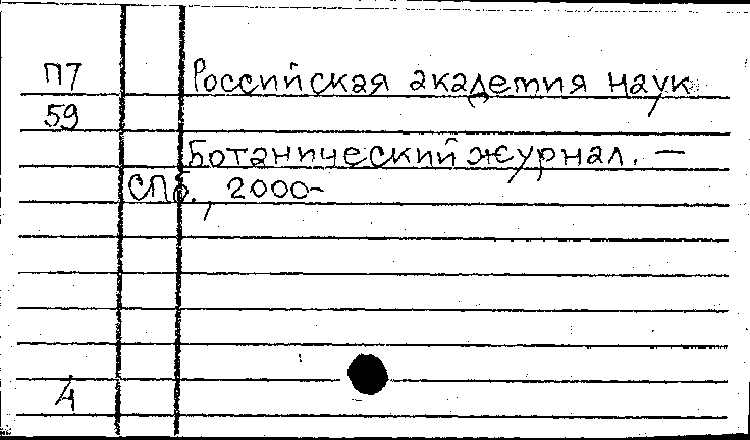 П7 Российская академия наук
59
Ботанический журнал. —
СПб., 2000-
А